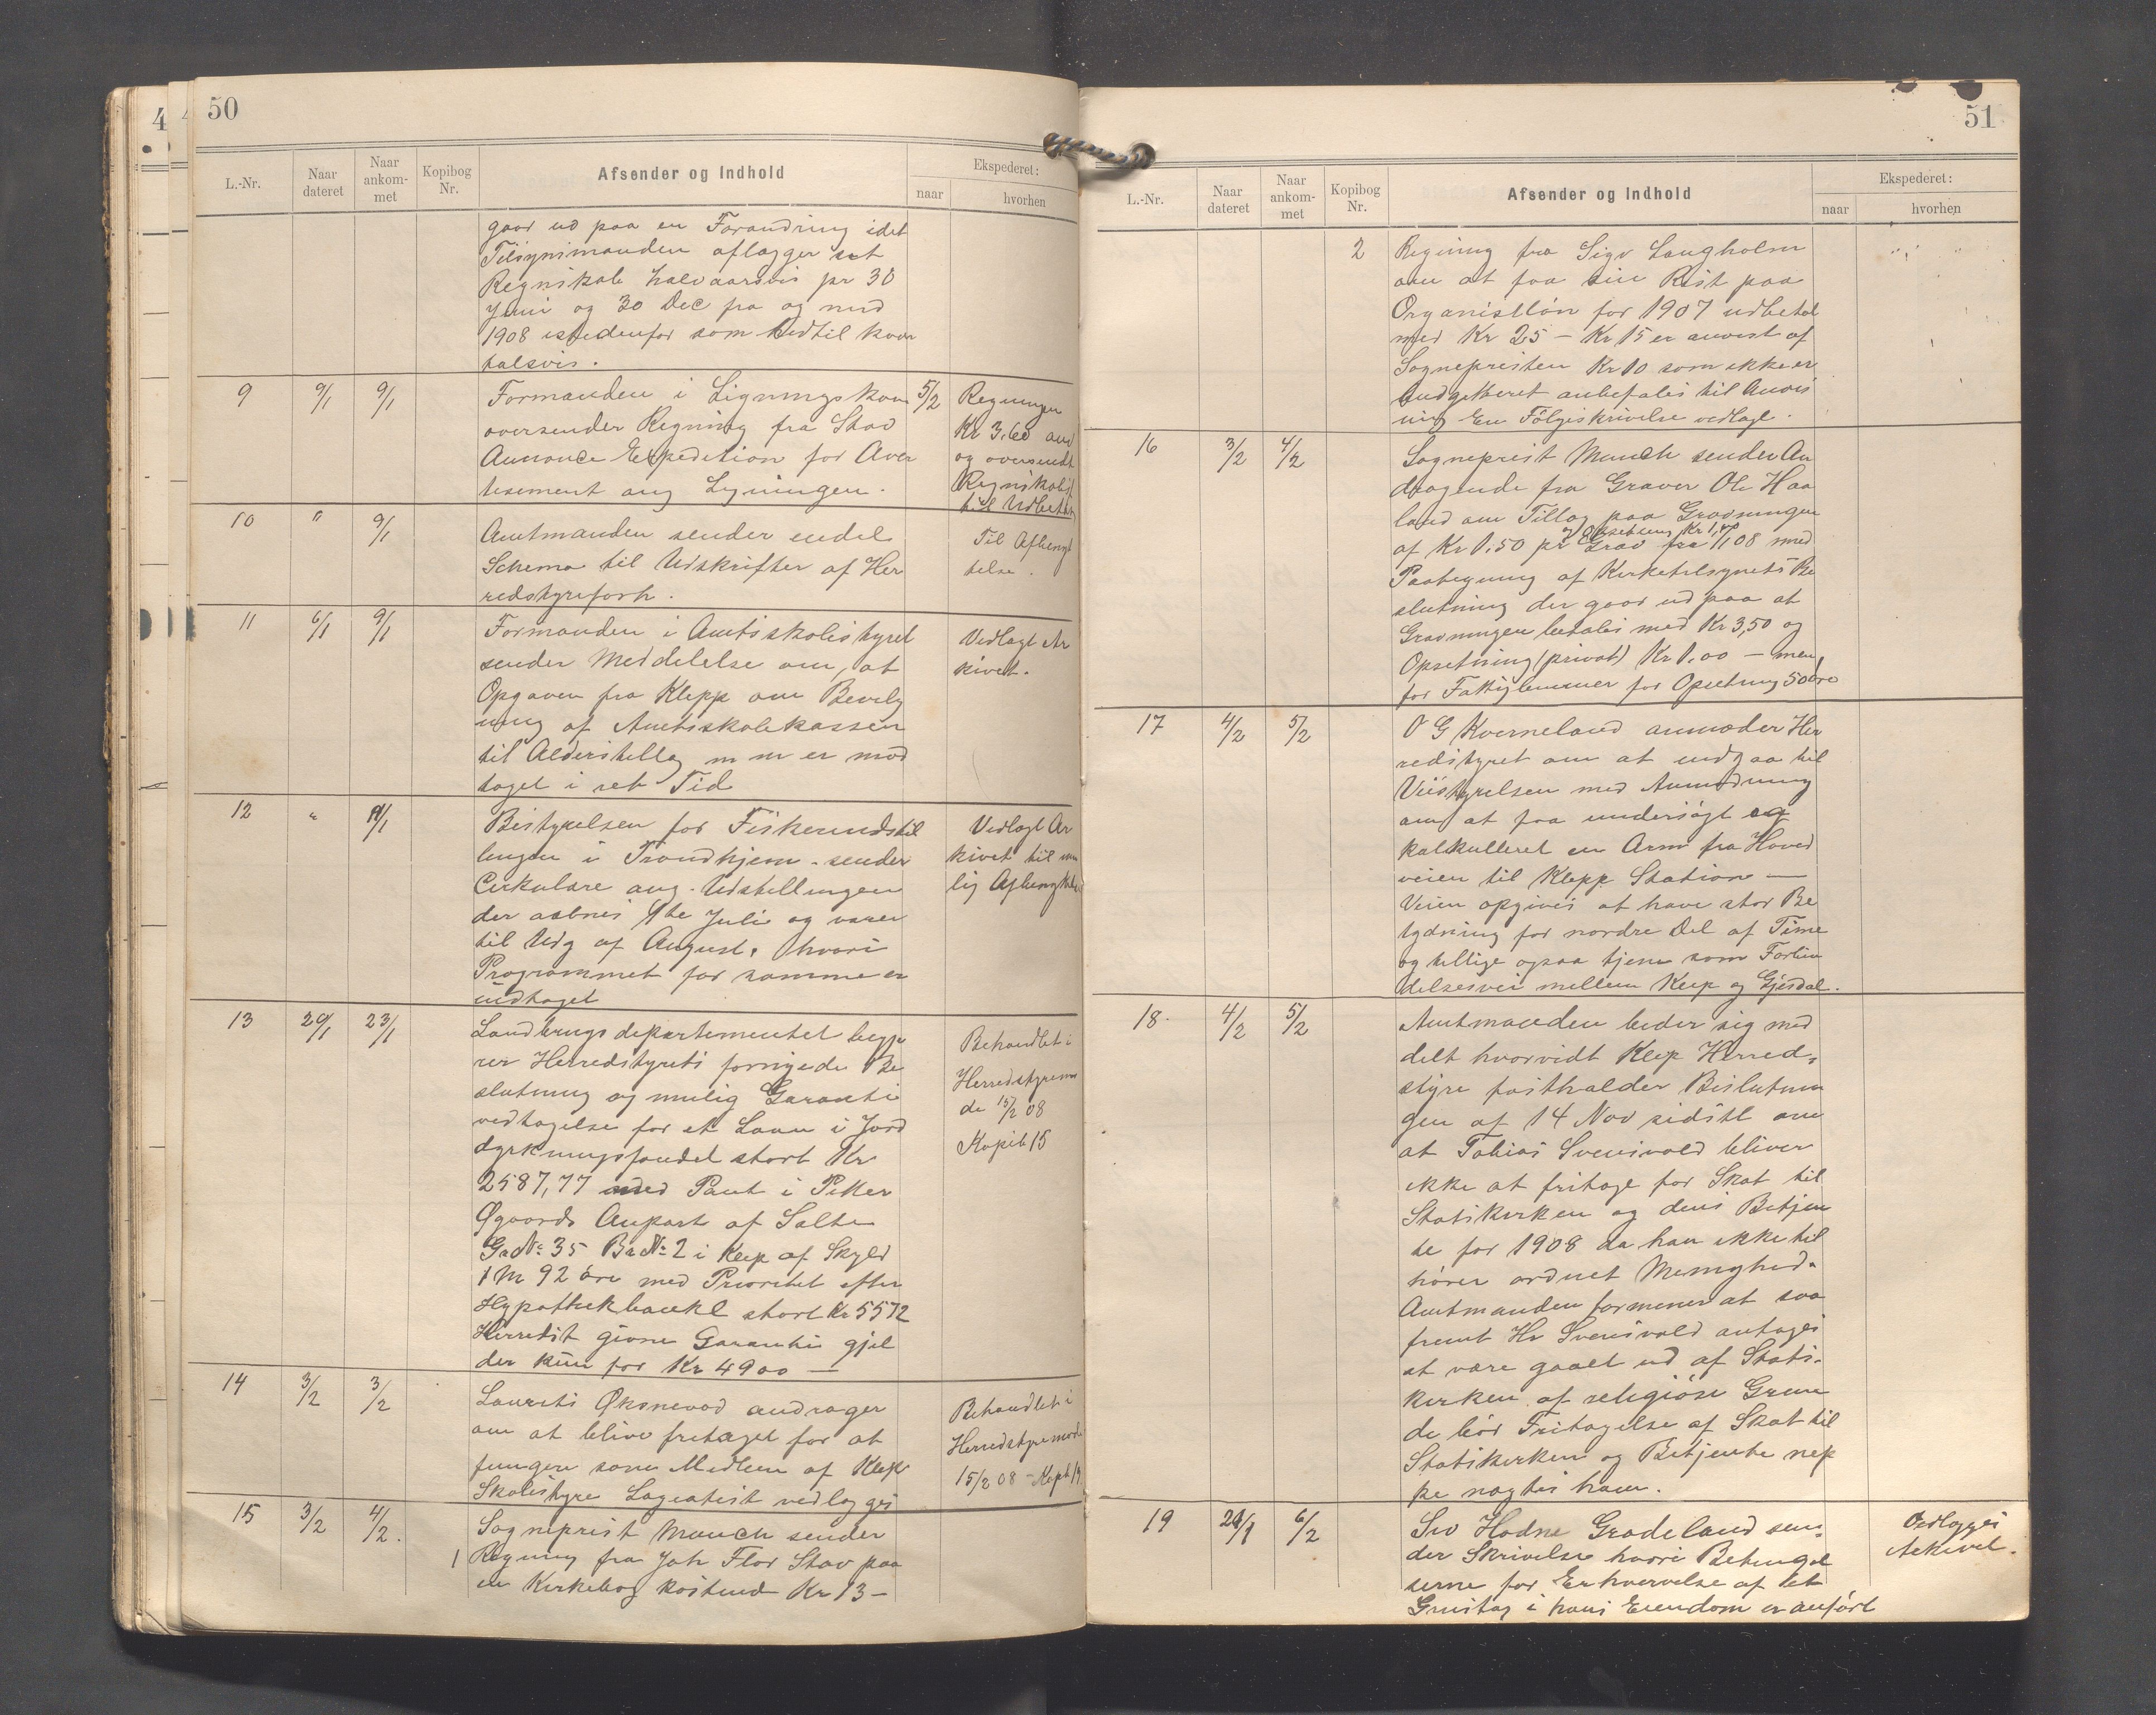 50
L.-Nr.
Naar dateret
Naar ankom-met
Kopibog Nr.
Afsender og Indhold
Ekspederet:
naar
hvorhen
gaar ud paa en Forandring idet
Tilsynsmanden aflægger sit
Regnskab halvaarsvis pr 30
Juni og 30 Dec fra og med
1908 istedenfor som hidtil kvar
talsvis.
9 9/1 9/1 Formanden i Ligningskom 5/2 Regningen
oversender Regning fra Stav Kr 3.60 anv
Annonce Expedition for Aver og oversendt
tisement ang Ligningen. Regnskabsf
til Udbetal
10 " 9/1 Amtmanden sender endel Til Afbenyt
Schema til Udskrifter af Her telse.
redstyreforh.
11 6/1 9/1 Formanden i Amtsskolestyret Vedlagt Ar
sender Meddelelse om, at kivet.
Opgaven fra Klepp om Bevilg
ning af Amtsskolekassen
til Alderstillæg m m er mod
taget i ret Tid
12 " 11/1 Bestyrelsen for Fiskeriudstil Vedlagt Ar
lingen i Trondhjem - sender kivet til mu
Cirkulære ang. Udstillingen lig Afbenyttelse
der aabnes 1te Juli og varer
til Udg af August, hvori
Programmet for samme er
indtaget
13 20/1 23/1 Landbrugsdepartementet begjæ Behandlet i
rer Herredstyrets fornyede Be Herredstyremø
slutning og mulig Garanti de 15/2 08
vedtagelse for et Laan i Jord Kopib 15
dyrkningsfondet stort Kr
2587,77 med Pant i Peter
Øgaards Anpart af Salte
Gr.No: 35 Br.No: 2 i Klep af Skyld
1 M 92 öre med Prioritet efter
Hypothekbankl stort Kr 5572
Herredst givne Garanti gjæl
der kun for Kr 4900 —
14 3/2 3/2 Laurits Øksnevad andrager Behandlet i
om at blive fritaget for at Herredstyremøde
fungere som Medlem af Klep 15/2 08 - Kopb
Skolestyre Lægeatest vedlægges
15 3/2 4/2. Sogneprest Munch sender
1 Regning fra Joh Flor Stav paa
en Kirkebog kostend Kr 13 —
51
L.-Nr.
Naar dateret
Naar ankom-met
Kopibog Nr.
Afsender og Indhold
Ekspederet:
naar
hvorhen
2 Regning fra Sigv Langholm
om at faa sin Rest paa
Organistløn for 1907 udbetal
med Kr 25 — Kr 15 er anvist af
Sognepresten Kr 10 som ikke er
budgetteret anbefales til Anvis
ning En Følgeskrivelse vedlagt.
16 3/2 4/2 Sogneprest Munch sender An
dragende fra Graver Ole Haa
land om Tillæg paa Gravningen
og Opsetning Kr 1,00
af Kr 1.50 pr Grav fra 1/1 08 med
Paategning af Kirketilsynets Be
slutning der gaar ud paa at
Gravningen betales med Kr 3,50 og
Opsetning (privat) Kr 1.00 — men
for Fattiglemmer for Opsetning 50 øre
17 4/2 5/2 O G Kverneland anmoder Her
redstyret om at indgaa til
Veistyrelsen med Anmodning
om at faa undersøgt og
kalkulleret en Arm fra Hoved
veien til Klepp Station —
Veien opgives at have stor Be
tydning for nordre Del af Time
og tillige ogsaa tjene som Forbin
delsesvei mellem Klep og Gjesdal.
18. 4/2 5/2 Amtmanden beder sig med
delt hvorvidt Klep Herred-
styre fastholder Beslutnin
gen af 14 Nov sidstl om
at Tobias Svensvold bliver
ikke at fritage for Skat til
Statskirken og dens Betjen
te for 1908 da han ikke til
hører ordnet Menighed.
Amtmanden formener at saa
fremt Hr Svensvold antages
at være gaaet ud af Stats-
kirken af religiöse Grun
de bör Fritagelse af Skat til
Statskirken og Betjente nep
pe nægtes ham.
19 6/2 Siv Hodne Grødeland sen- Vedlægges
der Skrivelse hvori Betingel Arkivet.
serne for Erhvervelse af et
Grustag i hans Eiendom er anført